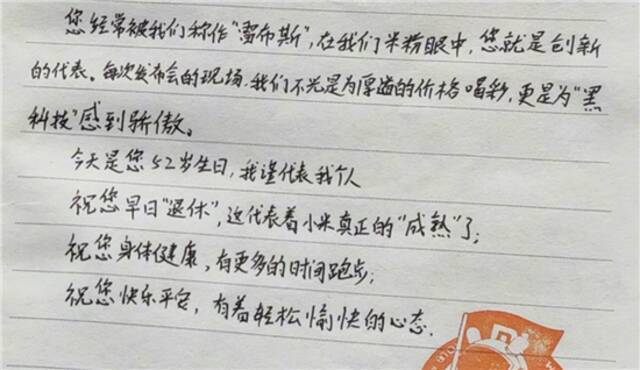 您经常被我们称作“雷布斯”,在我们米粉眼中,您就是创新
的代表。每次发布会的现场,我们不光是为厚道的价格喝彩,更是为“黑
科技”感到骄傲。
今天是您52岁生日,我谨代表我个人
祝您早日“退休”,这代表着小米真正的“成熟”了;
祝您身体健康,有更多的时间跑步;
祝您快乐平安,有着轻松愉快的心态.